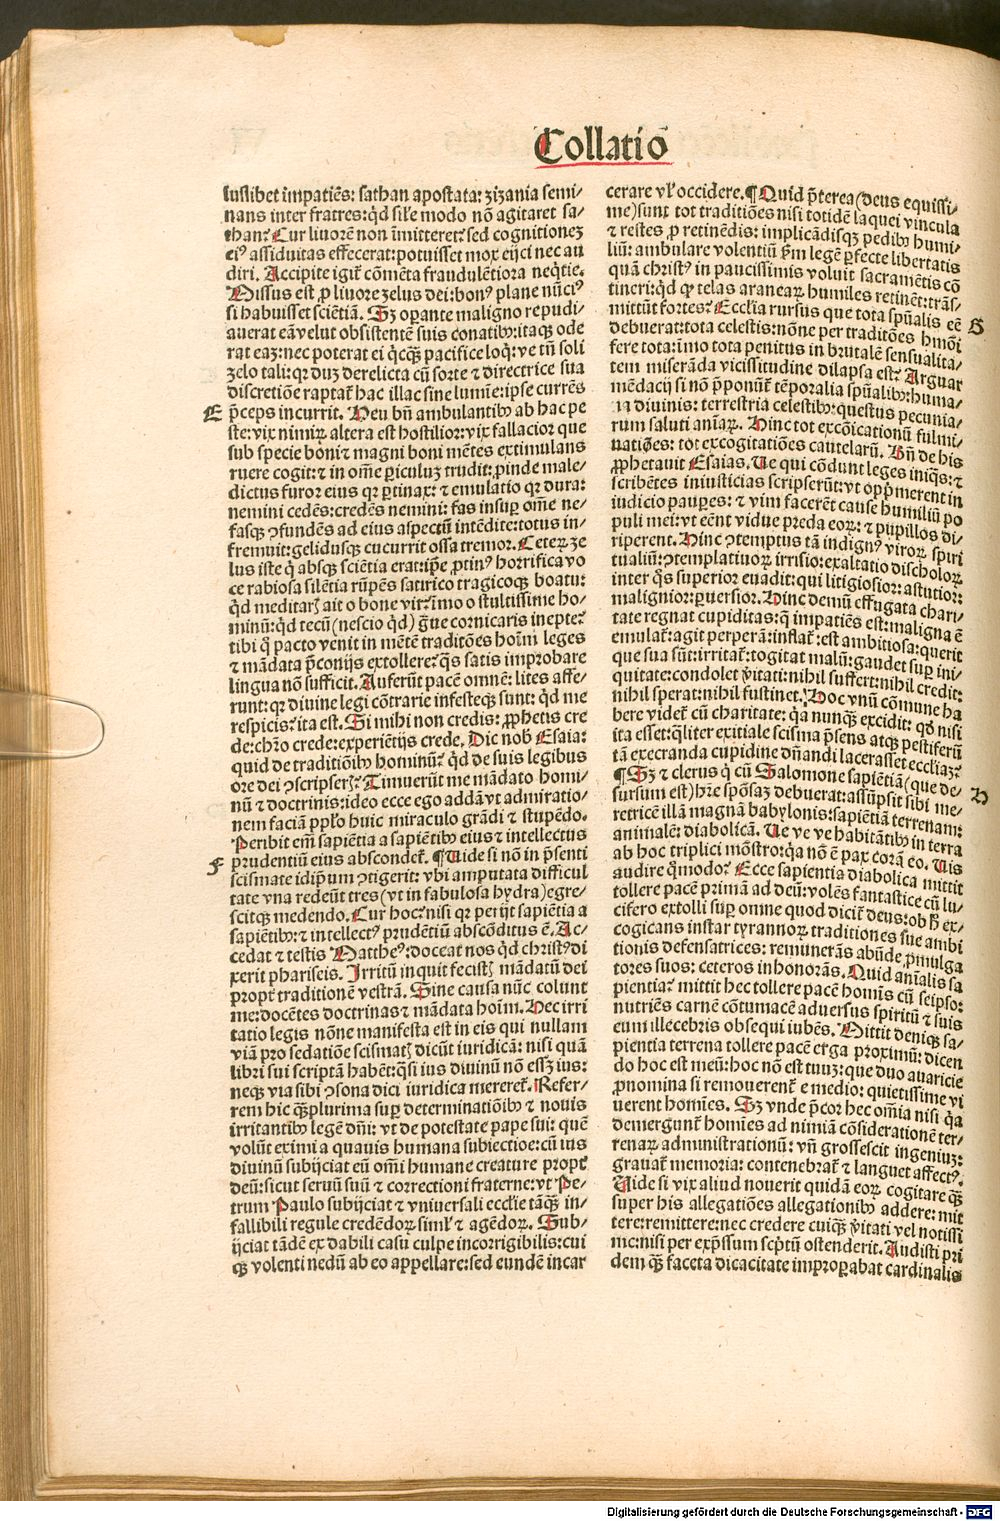 Collatiō
iuslibet impatiēs: sathan apostata: zizania semi/
nans inter fratres: qd sil'e modo nō agitaret sa/
than? Cur liuorē non īmitteret? sed cognitionez
eiꝰ assiduitas effecerat: potuisset mox eijci nec au
diri. Accipite igit̄ cōmēta fraudulētiora neq̄tie.
Missus est ꝓ liuore zelus dei: bonꝰ plane nūciꝰ
si habuisset sciētiā. Sz opante maligno repudi/
auerat eā velut obsistentē suis conatibꝰ: itaqꝫ ode
rat eaz: nec poterat ei q̄cqꝫ pacifice loq̄: ve tū soli
zelo tali: qꝛ duz derelicta cū sorte ⁊ directrice sua
discretiōe raptat̄ hac illac sine lumīe: ipse currēs
E
p̄ceps incurrit. Heu bn̄ ambulantibꝰ ab hac pe
ste: vix nimiꝝ altera est hostilior: vix fallacior que
sub specie boni ⁊ magni boni mētes extimulans
ruere cogit: ⁊ in om̄e ꝑiculuz trudit: ꝓinde male/
dictus furor eius qꝛ ꝑtinax: ⁊ emulatio qꝛ dura:
nemini cedēs: credēs nemini: fas insuꝑ om̄e ne/
fasqꝫ ꝯfundēs ad eius aspectū intēdite: totus in/
fremuit: gelidusqꝫ cucurrit ossa tremor. Ceteꝝ ze
lus iste q̄ absqꝫ sciētia erat: ip̄e ꝓtinꝰ horrifica vo
ce rabiosa silētia rūpēs satirico tragicoqꝫ boatu:
qd meditaris ait o bone vir? imo o stultissime ho/
minū: qd tecū (nescio qd) gn̄e cornicaris inepte?
tibi q̄ pacto venit in mētē traditōes hoīm leges
⁊ mādata p̄conijs extollere? q̄s satis improbare
lingua nō sufficit. Auferūt pacē omnē: lites affe/
runt: qꝛ diuine legi cōtrarie infesteqꝫ sunt: qd me
respicis? ita est. Si mihi non credis: ꝓphetis cre
de: ch̄ro crede: experiētijs crede. Dic nob Esaia:
quid de traditiōibꝰ hominū? qd de suis legibus
ore dei ꝯscripseris? Timuerūt me mādato homi/
nū ⁊ doctrinis: ideo ecce ego addā vt admiratio/
nem faciā ppl'o huic miraculo grādi ⁊ stupēdo.
Peribit em̄ sapiētia a sapiētibꝰ eius ⁊ intellectus
F
prudentiū eius abscondet̄. ¶ Uide si nō in p̄senti
scismate idip̄um ꝯtigerit: vbi amputata difficul
tate vna redeūt tres (vt in fabulosa hydra) egre/
scitqꝫ medendo. Cur hoc? nisi qꝛ perijt sapiētia a
sapiētibꝰ: ⁊ intellectꝰ prudētiū abscōditus ē. Ac/
cedat ⁊ testis Mattheꝰ: doceat nos qd christꝰ di
xerit phariseis. Irritū inquit fecistis mādatū dei
propt̄ traditionē vestrā. Sine causa nūc colunt
me: docētes doctrinas ⁊ mādata hoīm. Hec irri
tatio legis nōne manifesta est in eis qui nullam
viā pro sedatiōe scismatis dicūt iuridicā: nisi quā
libri sui scriptā habēt: q̄si ius diuinū nō essz ius:
neqꝫ via sibi ꝯsona dici iuridica mereret̄. Refer/
rem hic qꝫplurima suꝑ determinatiōibꝰ ⁊ nouis
irritantibꝰ legē dn̄i: vt de potestate pape sui: quē
volūt eximi a quauis humana subiectiōe: cū ius
diuinū subijciat eū om̄i humane creature propt̄
deū: sicut seruū suū ⁊ correctioni fraterne: vt Pe/
trum Paulo subijciat ⁊ vniuersali eccl'ie tāqꝫ in/
fallibili regule credēdoꝝ simul' ⁊ agēdoꝝ. Sub/
ijciat tādē ex dabili casu culpe incorrigibilis: cui
qꝫ volenti nedū ab eo appellare: sed eundē incar
cerare vl' occidere. ¶ Quid p̄terea (deus equissi/
me) sunt tot traditiōes nisi totidē laquei vincula
⁊ restes ꝓ retinēdis: implicādisqꝫ pedibꝰ humi/
liū: ambulare volentiū p̄m legē ꝑfecte libertatis
quā christꝰ in paucissimis voluit sacramētis cō
tineri: qd ꝙ telas araneaꝝ humiles retinēt: trās/
mittūt fortes? Eccl'ia rursus que tota spūalis eē
G
debuerat: tota celestis: nōne per traditōes hmōi
fere tota: imo tota penitus in brutalē sensualita/
tem miserāda vicissitudine dilapsa est? Arguar
mēdacij si nō p̄ponūt̄ tēporalia spūalibꝰ: huma/
na diuinis: terrestria celestibꝰ: questus pecunia/
rum saluti aīaꝝ. Hinc tot excōicationū fulmi/
natiōes: tot excogitatiōes cautelarū. Bn̄ de his
ꝓphetauit Esaias. Ue qui cōdunt leges iniq̄s: ⁊
scribētes iniusticias scripserūt: vt opp̄merent in
iudicio pauꝑes: ⁊ vim facerēt cause humiliū po
puli mei: vt eēnt vidue preda eoꝝ: ⁊ pupillos di/
riperent. Hinc ꝯtemptus tā indignꝰ viroꝝ spūri
tualiū: ꝯtemplatiuoꝝ irrisio: exaltatio discholoꝝ
inter q̄s superior euadit: qui litigiosior: astutior:
malignior: ꝑuersior. Hinc demū effugata chari/
tate regnat cupiditas: q̄ impatiēs est: maligna ē
emulat̄: agit perperā: inflat̄: est ambitiosa: querit
que sua sūt: irritat̄: cogitat malū: gaudet suꝑ ini/
quitate: condolet v̄itati: nihil suffert: nihil credit:
nihil sperat: nihil sustinet. Hoc vnū cōmune ha
bere videt̄ cū charitate: q̄a nunqꝫ excidit: qd nisi
ita esset: q̄liter exitiale scisma p̄sens atqꝫ pestiferū
tā execranda cupidine dn̄andi lacerasset eccl'iaz?
¶ Sz ⁊ clerus q̄ cū Salomone sapiētiā (que de/
H
sursum est) hr̄e spōsaz debuerat: assūpsit sibi me/
retricē illā magnā babylonis: sapiētiā terrenam:
animalē: diabolicā. Ue ve ve habitātibꝰ in terra
ab hoc triplici mōstro: q̄a nō ē pax corā eo. Uis
audire q̄modo? Ecce sapientia diabolica mittit
tollere pacē primā ad deū: volēs fantastice cū lu/
cifero extolli suꝑ omne quod dicit̄ deus: ob h̄ ex/
cogicans instar tyrannoꝝ traditiones sue ambi
tionis defensatrices: remunerās abūde ꝓmulga
tores suos: ceteros inhonorās. Quid aīalis sa
pientia? mittit hec tollere pacē homīs cū seipso:
nutriēs carnē cōtumacē aduersus spiritū ⁊ suis
eum illecebris obsequi iubēs. Mittit deniqꝫ sa/
pientia terrena tollere pacē erga proximū: dicen
do hoc est meū: hoc nō est tuuz: que duo auaricie
ꝓnomina si remouerent̄ e medio: quietissime vi
uerent homīes. Sz vnde p̄cor hec om̄ia nisi q̄a
demergunt̄ homīes ad nimiā cōsiderationē ter/
renaꝝ administrationū: vn̄ grossescit ingeniuz:
grauat̄ memoria: contenebrat̄ ⁊ languet affectꝰ.
Uide si vix aliud nouerit quidā eoꝝ cogitare qꝫ
super his allegatiōes allegationibꝰ addere: mit
tere: remittere: nec credere cuiqꝫ v̄itati vel notissi
me: nisi per exp̄ssum sc̄ptū ostenderit. Audisti pri
dem qꝫ faceta dicacitate improꝑabat cardinalis
Digitalisierung gefördert durch die Deutsche Forschungsgemeinschaft - DFG